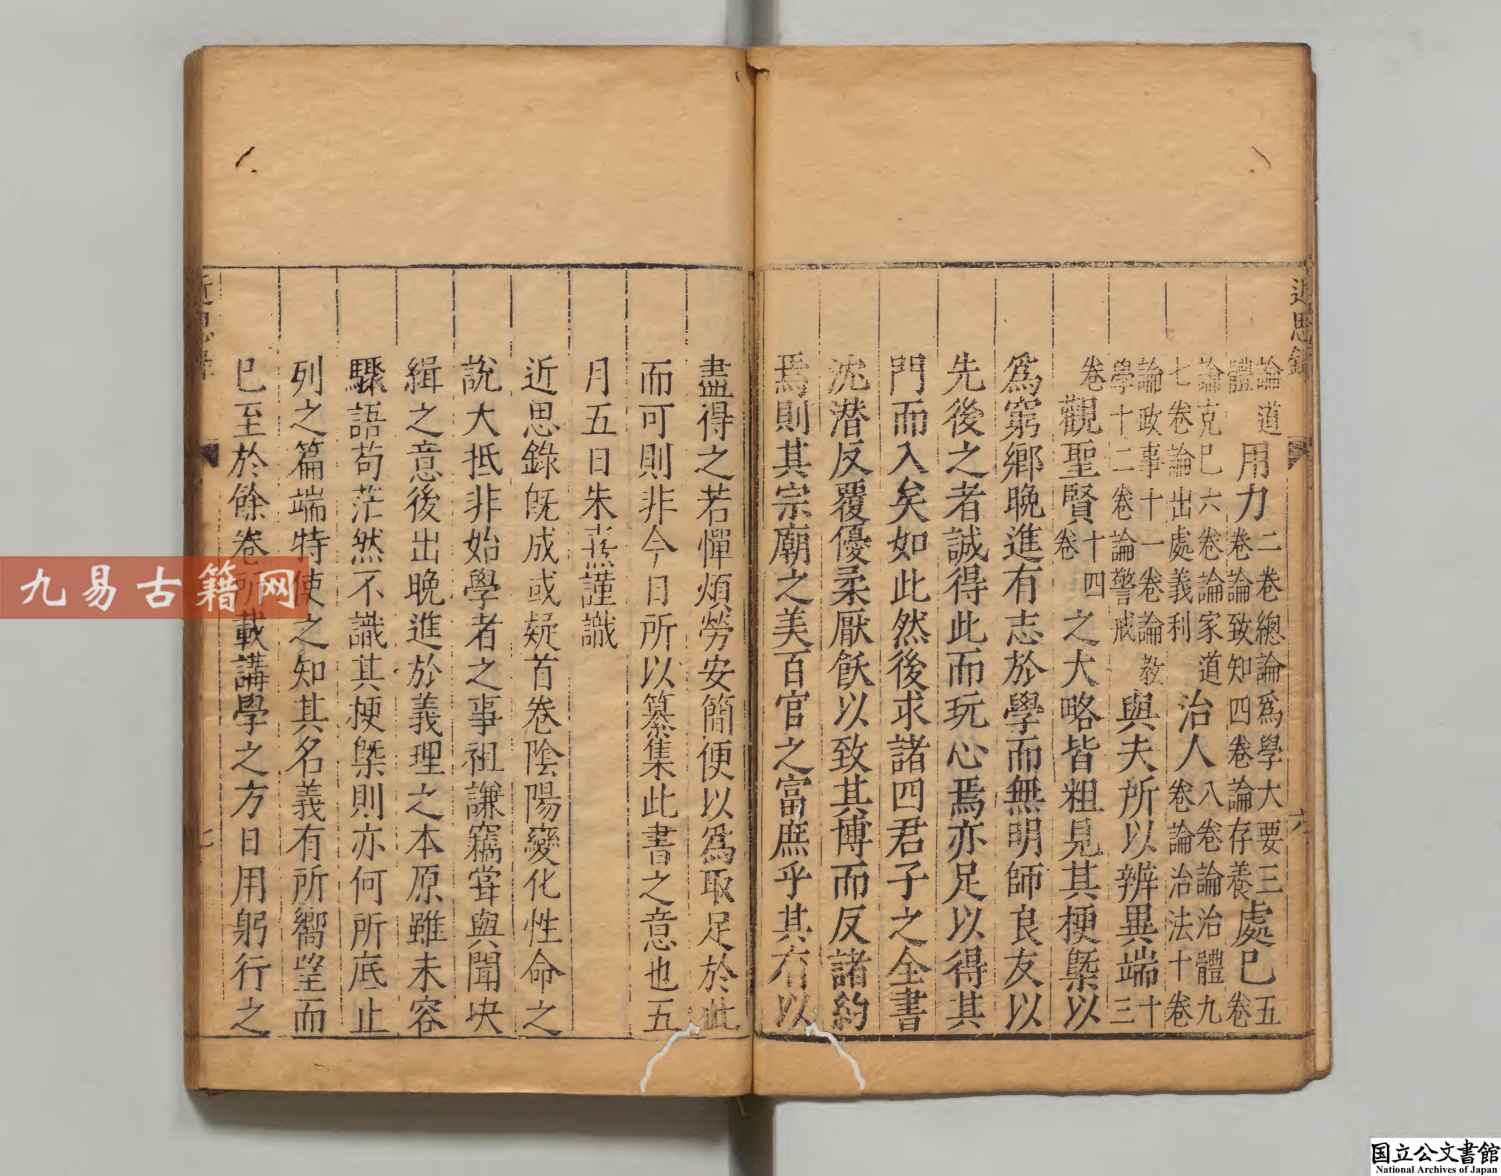 近思錄
六
論道體用力二卷總論爲學大要三卷論致知四卷論存養處巳五卷
論克巳六卷論家道七卷論出處義利治人八卷論治體九卷論治法十卷
論政事十一卷論教學十二卷論警戒與夫所以辨異端十三
卷觀聖賢十四卷之大略皆粗見其梗槩以
爲窮鄉晚進有志於學而無明師良友以
先後之者誠得此而玩心焉亦足以得其
門而入矣如此然後求諸四君子之全書
沈潛反覆優柔厭飫以致其博而反諸約
焉則其宗廟之美百官之富庶乎其有以
盡得之若憚煩勞安簡便以爲取足於此
而可則非今日所以纂集此書之意也五
月五日朱熹謹識
近思錄旣成或疑首卷陰陽變化性命之
說大抵非始學者之事祖謙竊嘗與聞次
緝之意後出晚進於義理之本原雖未容
驟語苟茫然不識其梗槩則亦何所底止
列之篇端特使之知其名義有所嚮望而
巳至於餘卷所載講學之方日用躬行之
近思錄
七
九易古籍网
国立公文書館
National Archives of Japan